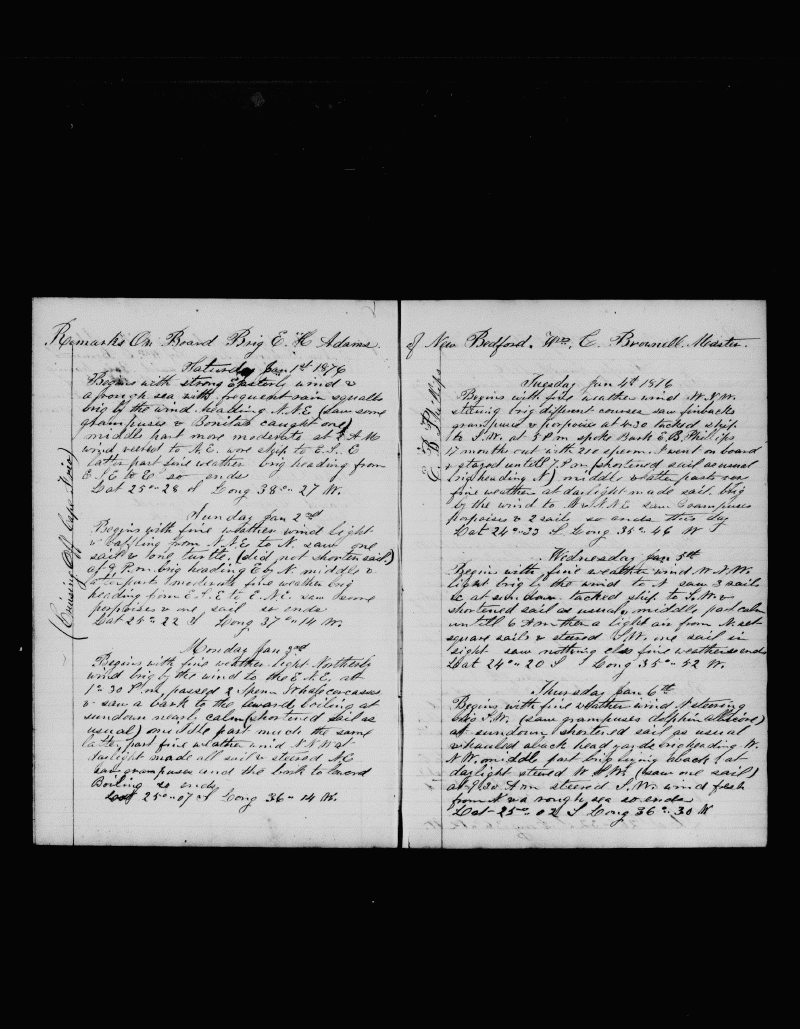 Remarks On Board Brig E. H Adams
Saturday Jan 1st 1876
Begins with strong Easterly wind &
a rough sea with frequent rain squalls
brig by the wind heading N.N.E (saw some
grampuses & Bonitas caught one)
middle part more moderate at 2 A M
wind veered to N.E. wore ship to E.S.E
latter part fine weather brig heading from
E.S.E to E so ends
Lat 25 " 28 S Long 38 " 27 W.
Sunday Jan 2nd
Begins with fine weather wind light
& baffling from N.N.E to N. saw one
sail & one turtle. (did not shorten sail)
at 9 P.m. brig heading E by N. middle &
latter part moderate fine weather brig
heading from E.S.E to E.N.E. saw some
porpoises & one sail so ends
Lat 25 " 22 S Long 37 " 14 W.
Monday Jan 3rd
Begins with fine weather light Northerly
wind brig by the wind to the E.N.E. at
1 " 30 P.m. passed 2 Sperm Whale carcases
& saw a bark to the leward boiling at
sundown nearly calm (shortened sail as
usual) middle part much the same
latter part fine weather wind N.N.W at
daylight made all sail & steered
saw grampuses and the bark to leward
Boiling so ends
Lat 25 " 07 S Long 36 " 14 W.
(Cruising Off Cape Frio)
of New Bedford. Wm. C. Brownell. Master.
Tuesday Jan 4th 1876
Begins with fine weather wind W.N.W.
steering brig different courses saw finbacks
grampuses & porpoises at 4.30 tacked ship
to S.W. at 5 P m spoke Bark E.B. Phillips
17 months out with 210 sperm. went on board
& stayed untill 7 P.m. (shortened sail as usual
brig heading N) middle & latter parts
fine weather at daylight made sail. brig
by the wind to saw Grampuses
porpoises & 2 sails so ends this day
Lat 24 " 33 S Long 35 " 46 W
Wednesday Jan 5th
Begins with fine weather wind W.N.W.
light brig by the wind to N saw 3 sails
&c at sundown tacked ship to S.W. &
shortened sail as usual, middle part calm
untill 6 A m then a light air from N. set
square sails & steered S.W. one sail in
sight saw nothing else fine weather so ends
Lat 24 " 20 S Long 35 " 52 W.
Thursday Jan 6th
Begins with fine weather wind N steering
brig S.W. (saw grampuses dolphin albicore)
at sundown shortened sail as usual
& hauled aback head yards brig heading W.
N.W. middle part brig lying aback (at
daylight steered W.S.W. (saw one sail)
at 9.30 A m steered S.W. wind fresh
from N and rough sea so ends
Lat 25 " 02 S Long 36 " 30 W
E. B Phillips